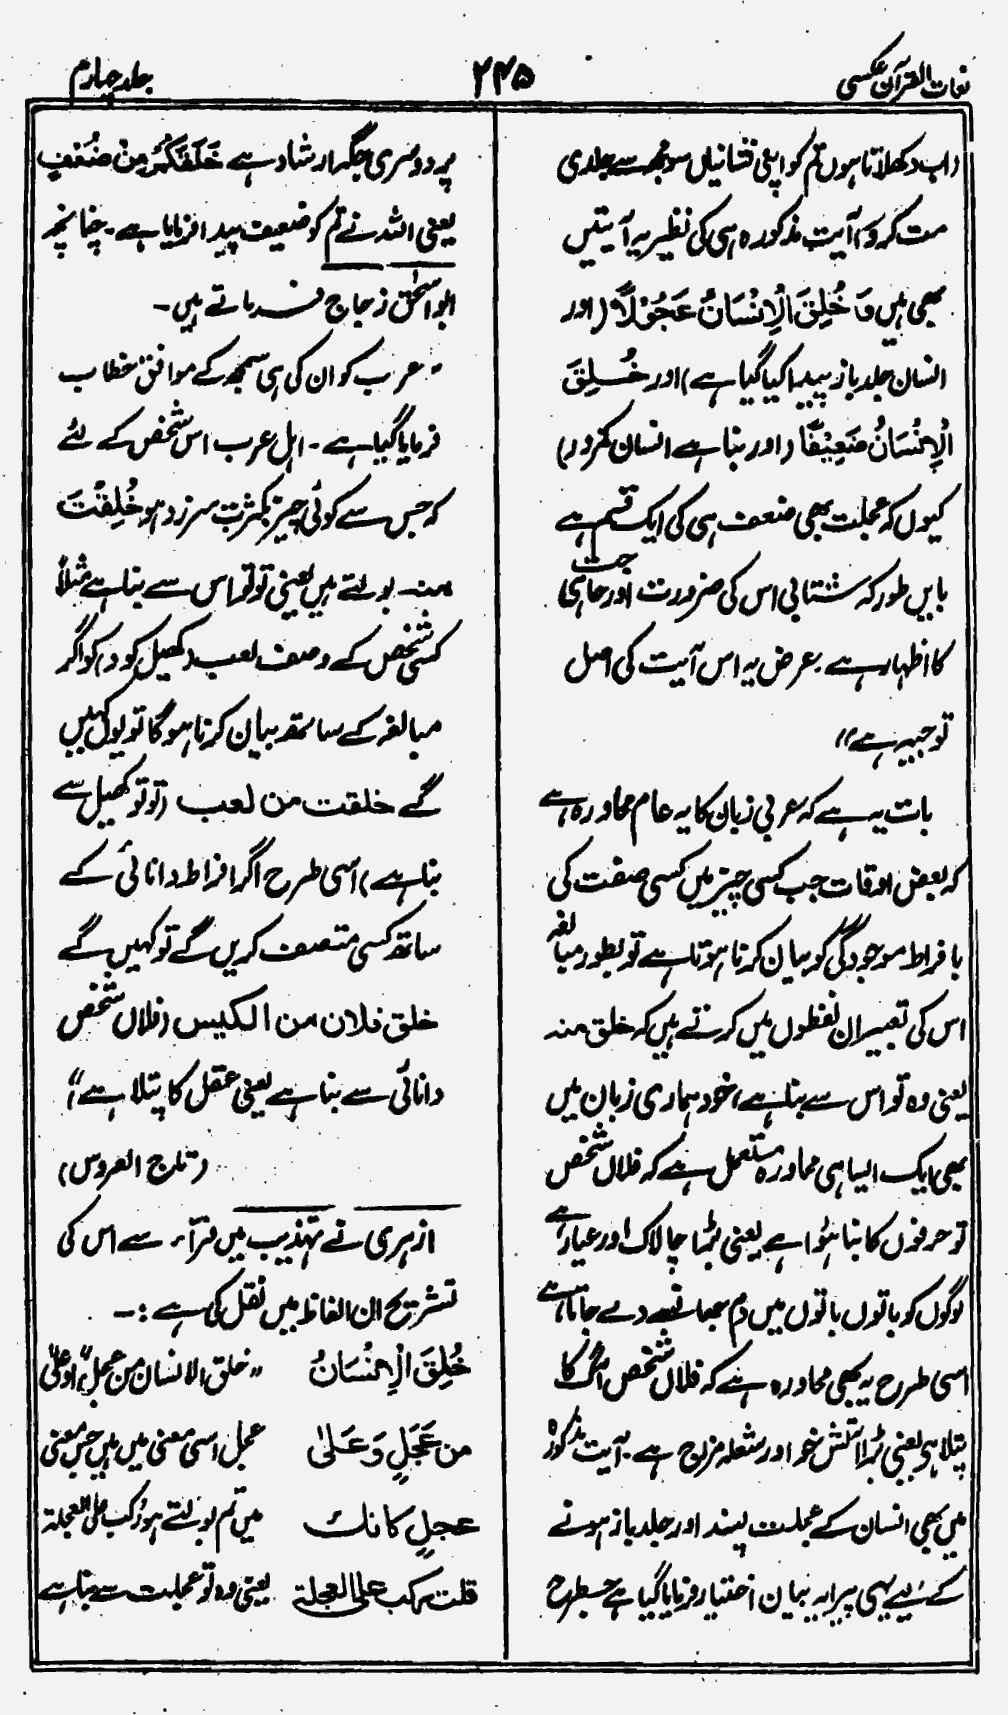 لغات القرآن عکسی
۲۴۵
جلد چہارم
(اب دکھلاتا ہوں تم کو اپنی نشانیاں سو مجھ سے جلدی
مت کرو) آیت مذکورہ ہی کی نظیر یہ آیتیں
بھی ہیں وَ خُلِقَ الْاِنْسَانُ عَجُوْلًا (اور
انسان جلد باز پیدا کیا گیا ہے) اور خُلِقَ
الْاِنْسَانُ ضَعِیْفًا (اور بنا ہے انسان کمزور)
کیوں کہ عجلت بھی ضعف ہی کی ایک قسم ہے
بایں طور کہ شتابی اس کی ضرورت اور حاجت ہی
کا اظہار ہے۔ غرض یہ اس آیت کی اصل
توجیہ ہے"
بات یہ ہے کہ عربی زبان کا یہ عام محاورہ ہے
کہ بعض اوقات جب کسی چیز میں کسی صفت کی
با فراط موجودگی کو بیان کرنا ہوتا ہے تو بطور مبالغہ
اس کی تعبیر ان لفظوں میں کرتے ہیں کہ خلق منہ
یعنی وہ تو اس سے بنا ہے، خود ہماری زبان میں
بھی ایک ایسا ہی محاورہ مستعمل ہے کہ فلاں شخص
تو حرفوں کا بنا ہوا ہے یعنی بڑا چالاک اور عیار ہے
لوگوں کو باتوں باتوں میں دم جھانسے دے جاتا ہے
اسی طرح یہ بھی محاورہ ہے کہ فلاں شخص آگ کا
پتلا ہے یعنی بڑا آتش خو اور شعلہ مزاج ہے۔ آیت مذکورہ
میں بھی انسان کے عجلت پسند اور جلد باز ہونے
کے لیے یہی پیرایہ بیان اختیار فرمایا گیا ہے جس طرح
پر دوسری جگہ ارشاد ہے خَلَقَکُمْ مِنْ ضُعْفٍ
یعنی اللہ نے تم کو ضعیف پیدا فرمایا ہے۔ چنانچہ
ابو اسحٰق زجاج فرماتے ہیں۔
"عرب کو ان کی ہی سمجھ کے موافق خطاب
فرمایا گیا ہے۔ اہل عرب اس شخص کے لئے
کہ جس سے کوئی چیز بکثرت سرزد ہو خُلِقْتَ
منہ بولتے ہیں یعنی تو تو اس سے بنا ہے مثلاً
کسی شخص کے وصف لعب (کھیل کود) کو اگر
مبالغہ کے ساتھ بیان کرنا ہوگا تو یوں کہیں
گے خلقت من لعب (تو تو کھیل سے
بنا ہے) اسی طرح اگر افراط دانائی کے
ساتھ کسی متصف کریں گے تو کہیں گے
خلق فلان من الکیس (فلاں شخص
دانائی سے بنا ہے یعنی عقل کا پتلا ہے)"
(تاج العروس)
ازہری نے تہذیب میں فراء سے اس کی
تشریح ان الفاظ میں نقل کی ہے :۔
خُلِقَ الْاِنْسَانُ "خلق الانسان من عجل" اور علی
من عَجَلٍ وَعَلیٰ عجل اسی معنی میں ہیں جس معنی
عجلٍ کانك میں تم بولتے ہو رکب علی العجلۃ
قلت رکب علی العجلۃ یعنی وہ تو عجلت سے بنا ہے